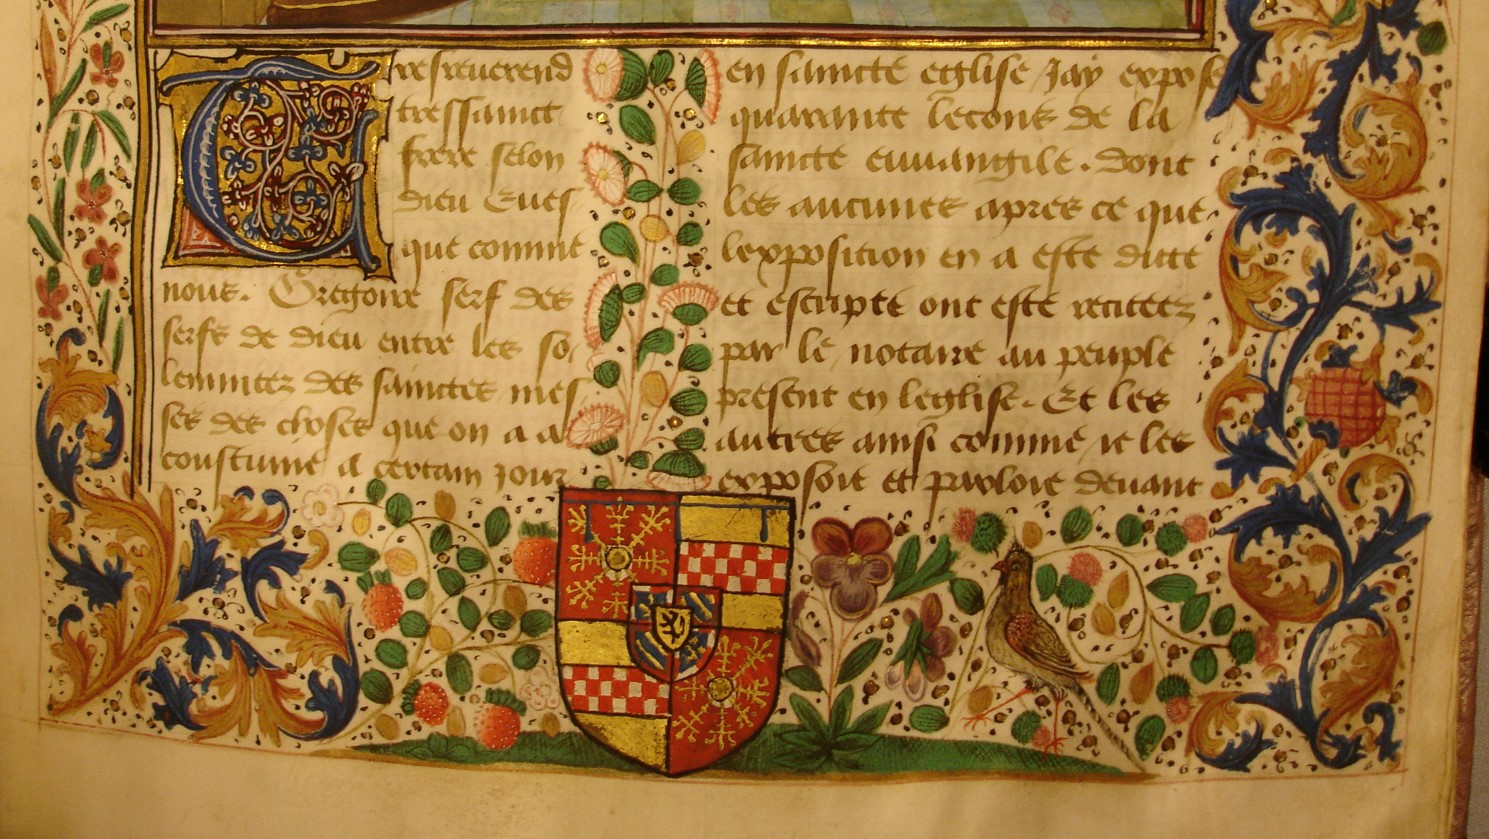 Tresreuerend
tressainct
frere selon
dieu Eues
que comme
nous. Gregoire serf des
serfs de dieu entre les so
lemnitez des sainctes mes
ses des choses que on a a
coustume a certain jour
en saincte eglise Jay expose
quarante lecons de la
saincte euuangile. dont
les aucunes apres ce que
lexposition en a este dicte
et escripte ont este recitees
par le notaire au peuple
present en leglise. Et les
autres ainsi comme ie les
exposoie et parloie deuant